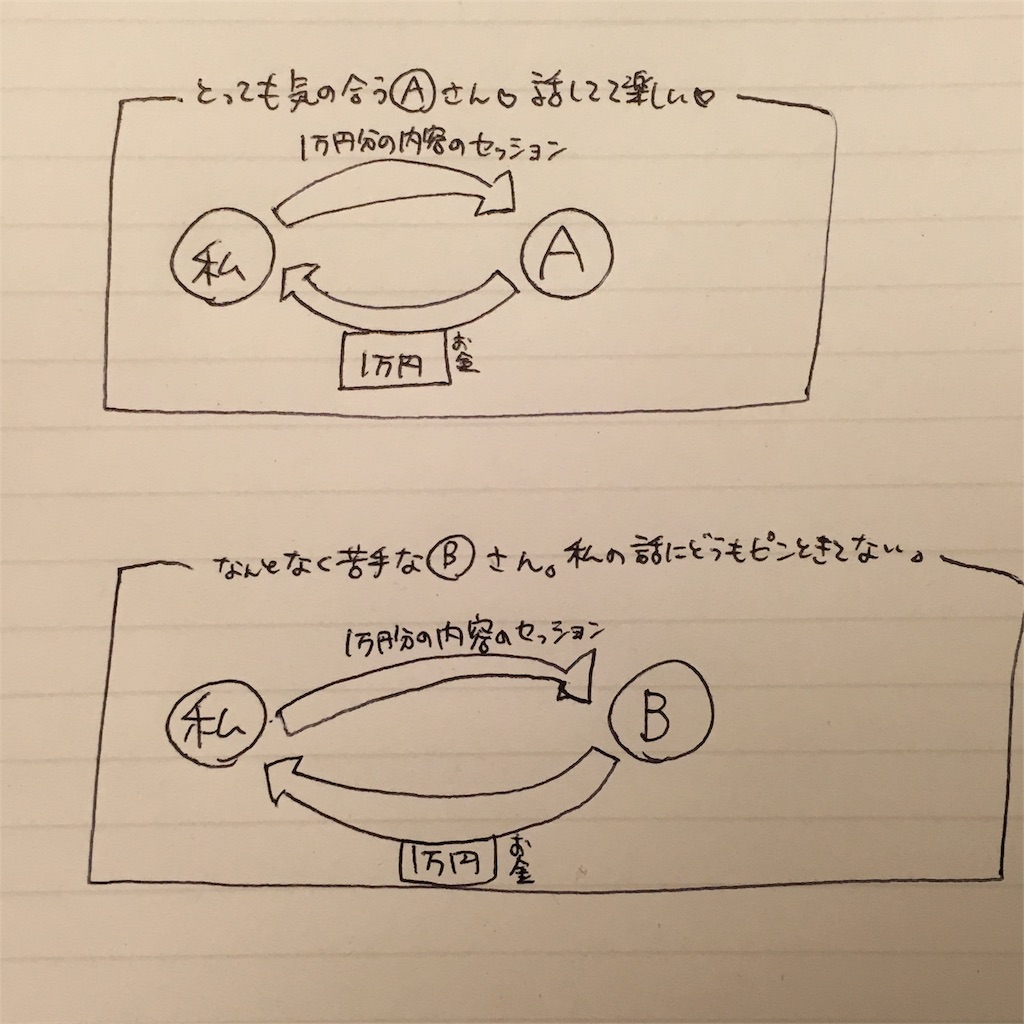 とっても気の合うⒶさん♡ 話してて楽しい♡
1万円分の内容のセッション
私
A
1万円
お金
なんとなく苦手なⒷさん。私の話にどうもピンときてない。
1万円分の内容のセッション
私
B
1万円
お金